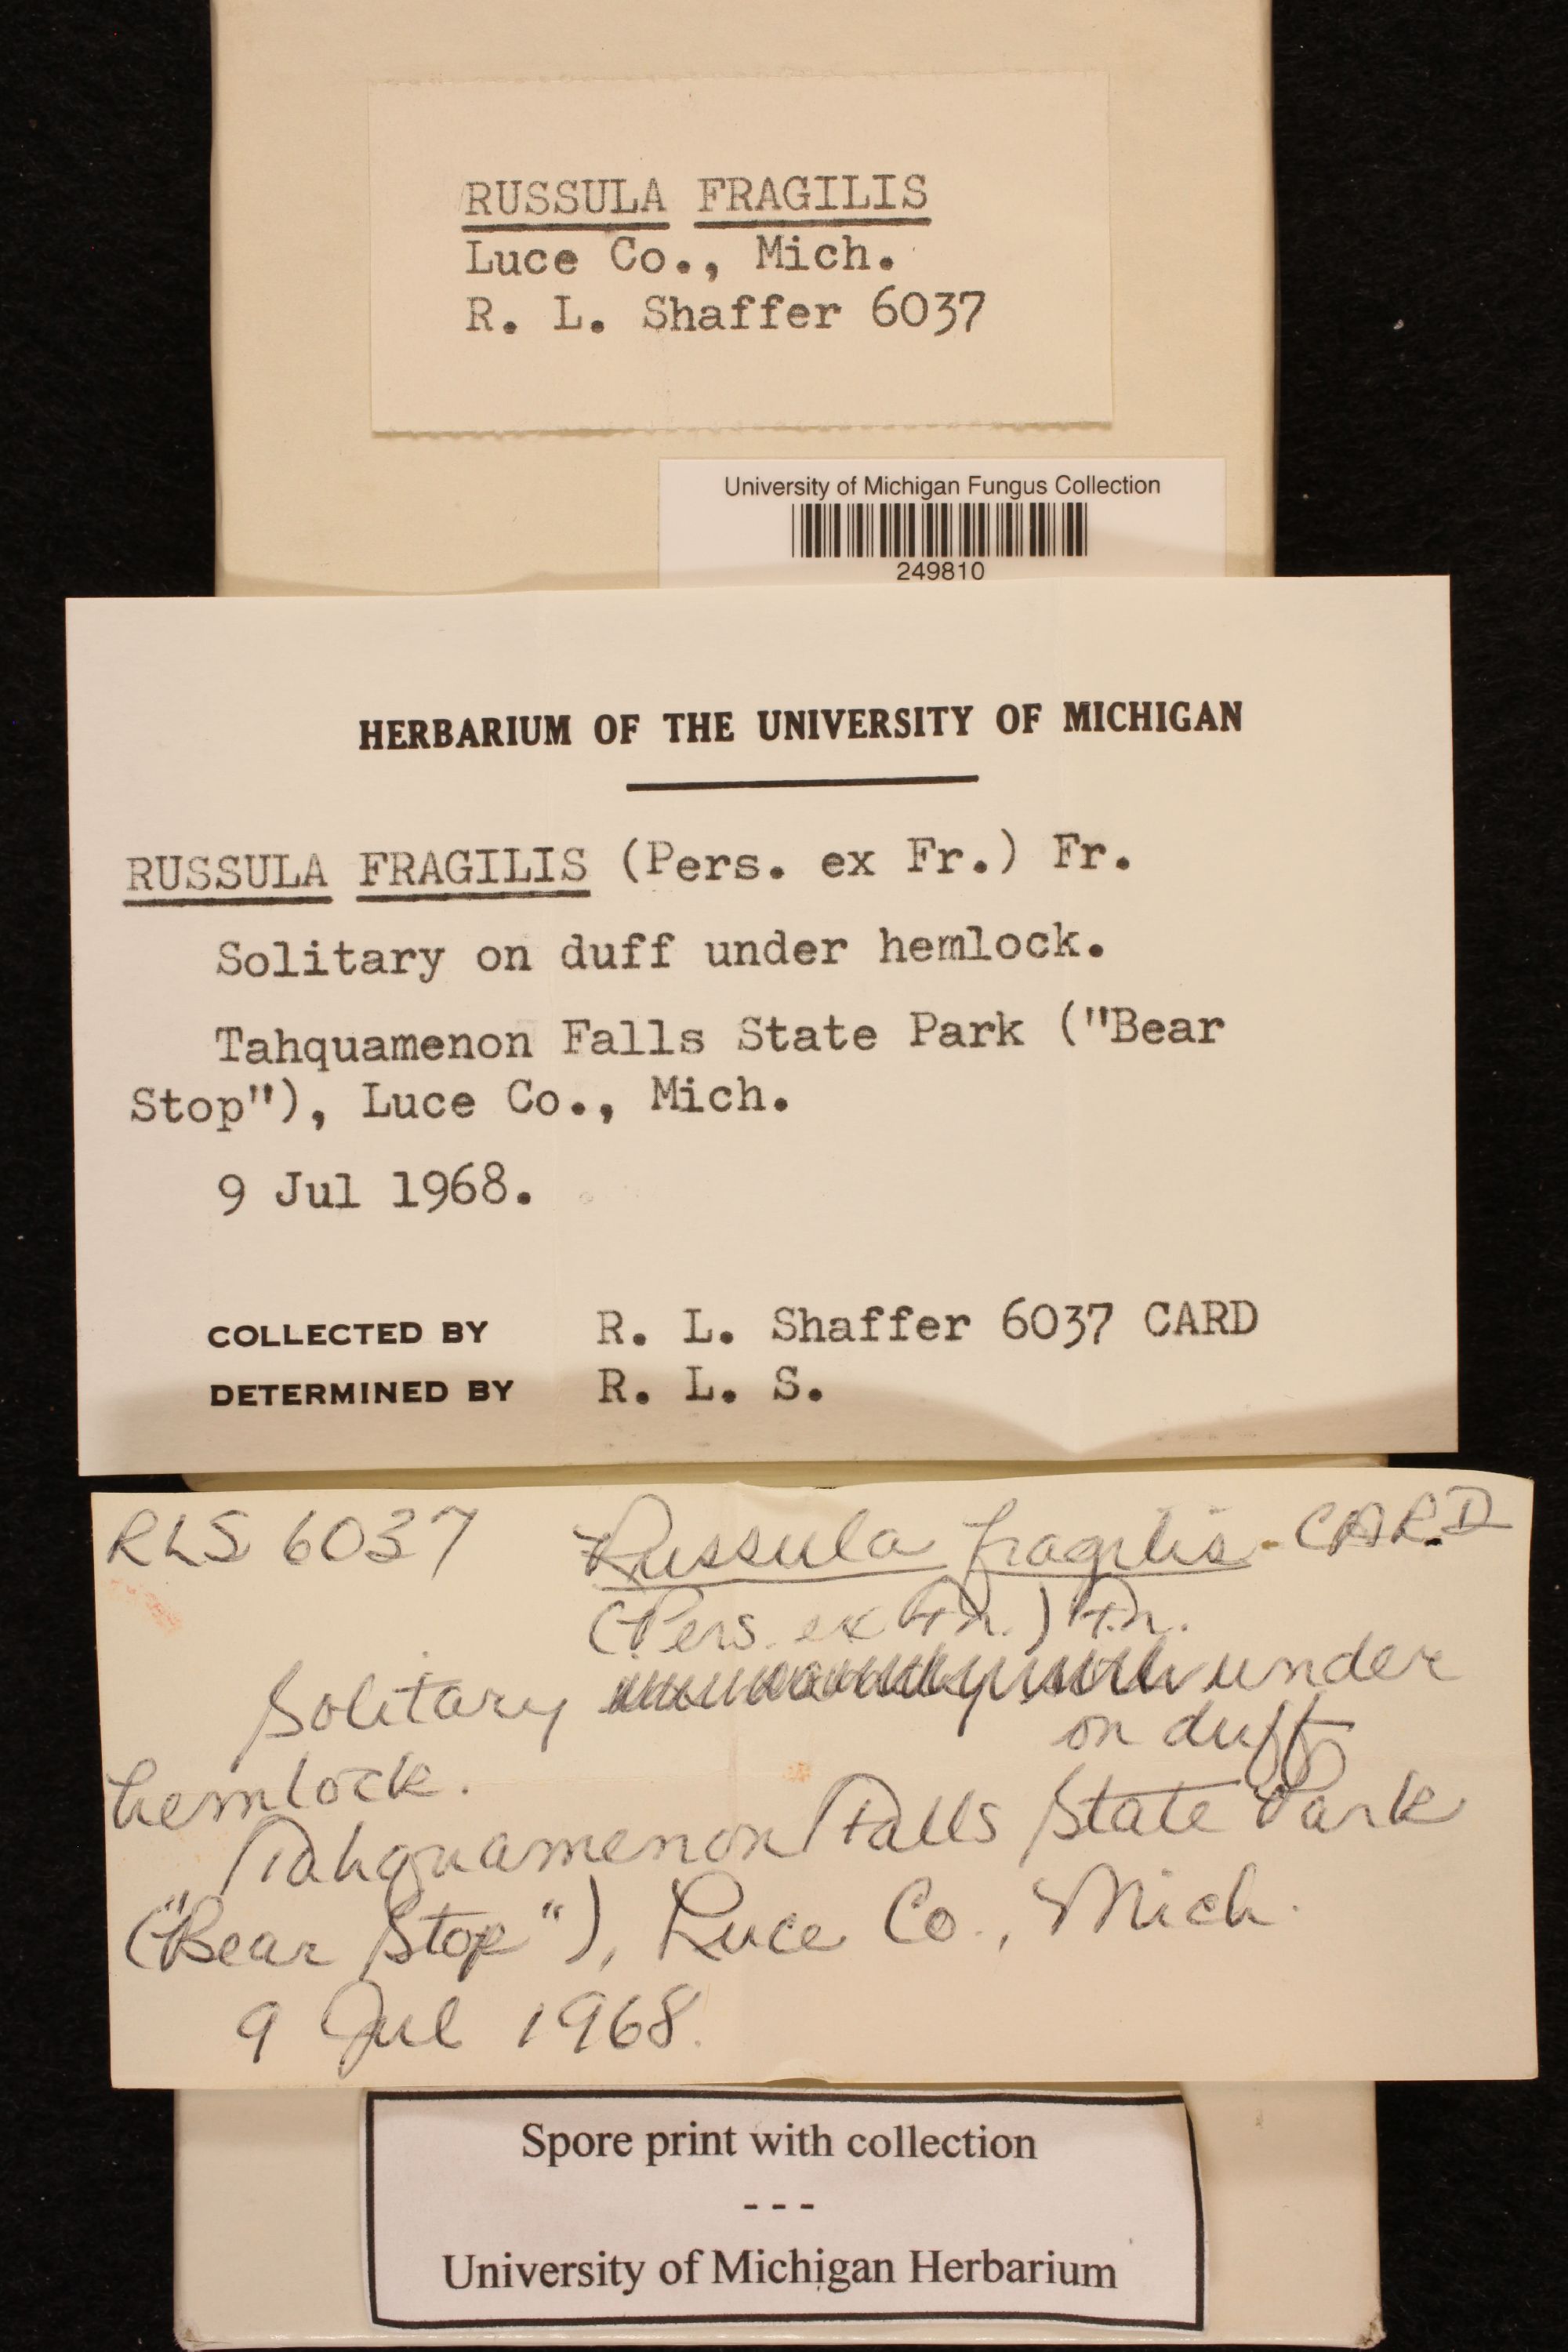 RUSSULA FRAGILIS
Luce Co., Mich.
R. L. Shaffer 6037
University of Michigan Fungus Collection
249810
HERBARIUM OF THE UNIVERSITY OF MICHIGAN
RUSSULA FRAGILIS (Pers. ex Fr.) Fr.
Solitary on duff under hemlock.
Tahquamenon Falls State Park ("Bear
Stop"), Luce Co., Mich.
9 Jul 1968.
COLLECTED BY R. L. Shaffer 6037 CARD
DETERMINED BY R. L. S.
RLS 6037 Russula fragilis - CARD
(Pers. ex Fr.) Fr.
Solitary under
on duff
hemlock.
Tahquamenon Falls State Park
("Bear Stop"), Luce Co., Mich.
9 Jul 1968.
Spore print with collection
---
University of Michigan Herbarium